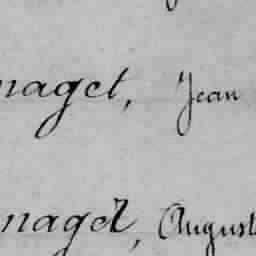 naget, Jean
naget, August